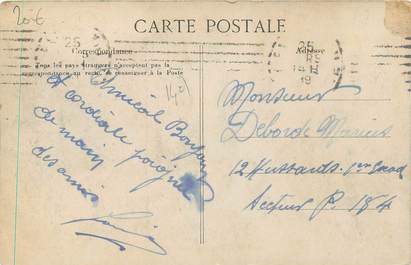 206
CARTE POSTALE
25
25
Correspondance
Adresse
Tous les pays étrangers n'acceptent pas la
correspondance au recto, se renseigner à la Poste
Amical Bonjour
et cordiale poignée
de main
des amis
Monsieur
Deborde Marius
12 Hussards. 1er Escad
Secteur P. 184